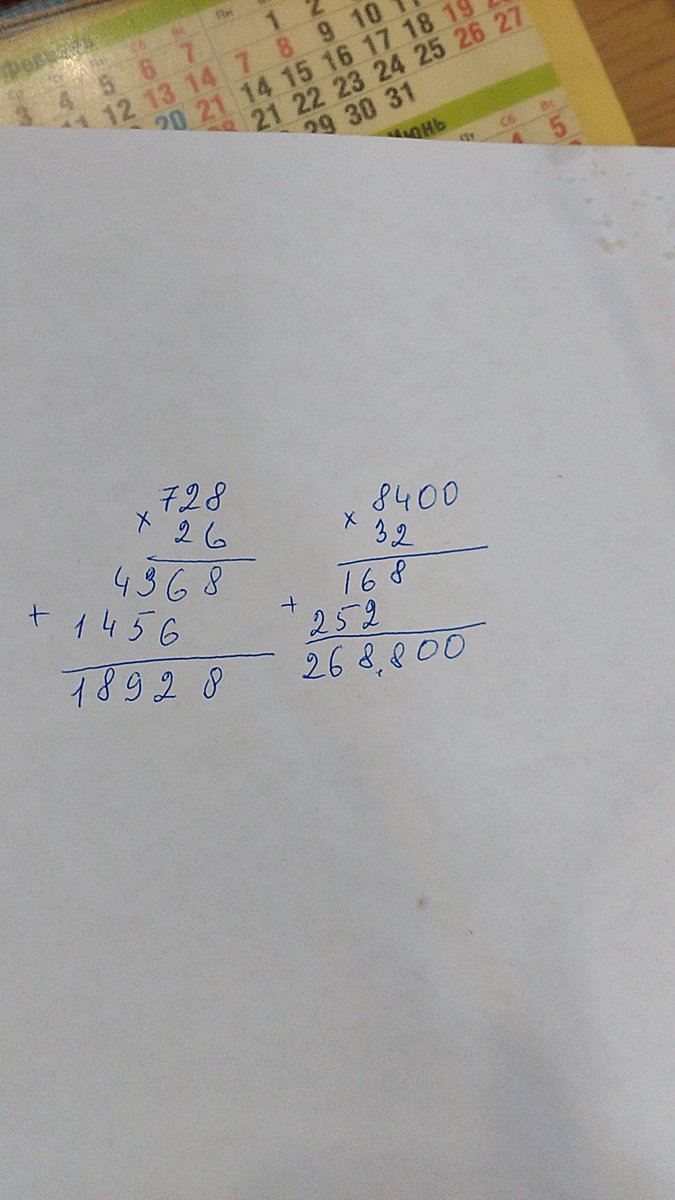 Февраль
Пн
1 2
Сб Вс
6 7
7 8 9 10 11
19 20
3 4 5
14 15 16 17 18
26 27
11 12 13 14
21 22 23 24 25
20 21
28 29 30 31
Июнь
Пт Сб Вс
4 5
728
× 26
4368
+ 1456
18928
8400
× 32
168
+ 252
268.800